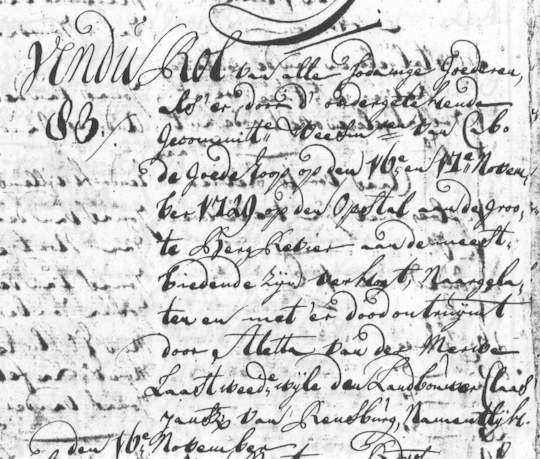 Vendu Rol van alle zodanige Goederen,
83. / als 'er door d' ondergetekende
Gecommitt.e Weesm.ren van Cabo
de Goede Hoop op den 16.e en 17.e Novem-
ber 1729 op den Opstal aan de Groo-
te Berg Revier aan de meest-
biedende zijn verkogt, Naargela-
ten en met 'er dood ontruijmt
door Aletta van der Merwe
Laast weed.e wijle den Landbouwer Claas
Jansz van Rensburg, Namentlijk.
den 16.e November